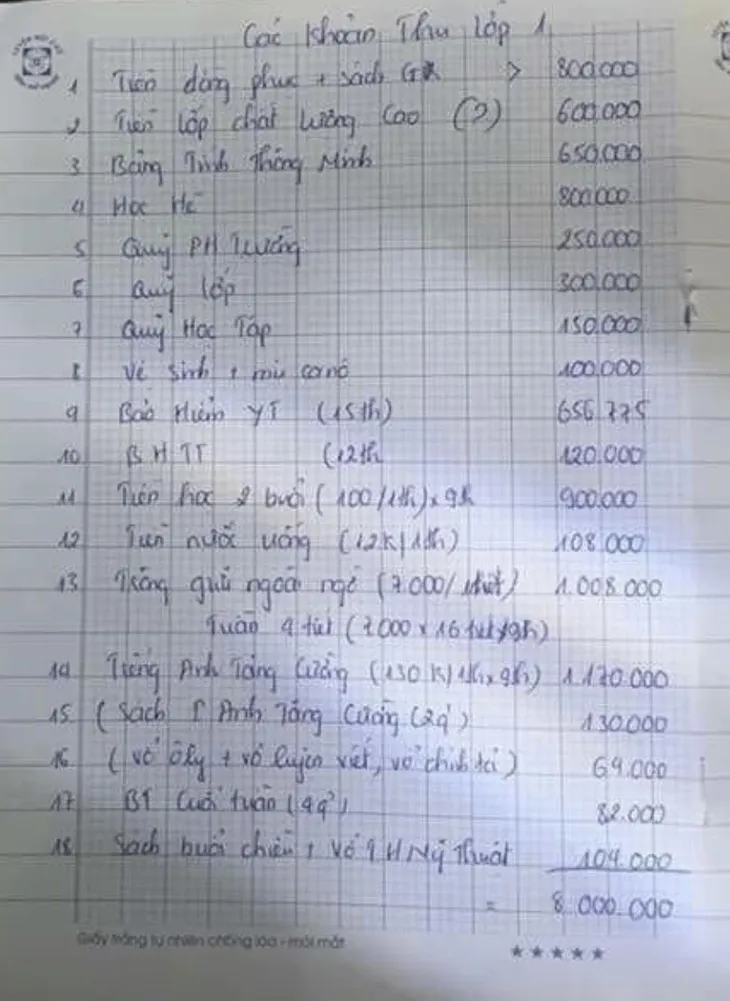 Các khoản Thu Lớp 1
1 Tiền đồng phục + sách GK > 800.000
2 Tiền lớp chất lượng cao (?) 600.000
3 Bảng Tính Thông Minh 650.000
4 Học Hè 800.000
5 Quỹ PH Trường 250.000
6 Quỹ lớp 300.000
7 Quỹ Học Tập 150.000
8 Vệ sinh + mũ ca nô 100.000
9 Bảo Hiểm YT (15th) 656.775
10 BHTT (12th 120.000
11 Tiền học 2 buổi (100/1th) x 9th 900.000
12 Tiền nước uống (12K/1th) 108.000
13 Trông giữ ngoài ngỏ (7.000/1tiết) 1.008.000
Tuần 4 tiết (7.000 x 16 tiết/9th)
14 Tiếng Anh Tăng Cường (130K/1th x 9th) 1.170.000
15 (Sách T Anh Tăng Cường (2q') 130.000
16 (vở ôly + vở luyện viết, vở chính tả) 69.000
17 BT Cuối tuần (4q') 82.000
18 Sách buổi chiều + vở Mỹ Thuật 104.000
= 8.000.000
Giấy trắng tự nhiên chống lóa - mỏi mắt
★★★★★